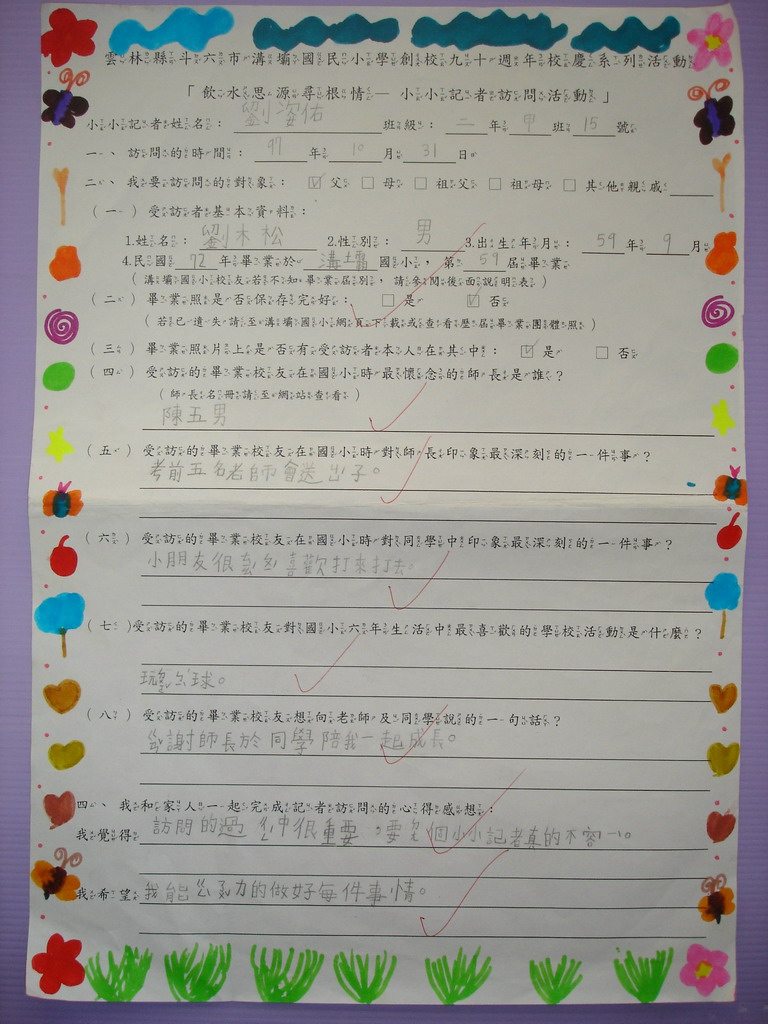 雲林縣斗六市溝壩國民小學創校九十週年校慶系列活動
「飲水思源尋根情—小小記者訪問活動」
小小記者姓名： 劉姿佑 班級： 二 年 甲 班 15 號
一、訪問的時間： 97 年 10 月 31 日
二、我要訪問的對象： ☑父 □母 □祖父 □祖母 □其他親戚
（一）受訪者基本資料：
1.姓名： 劉木松 2.性別： 男 3.出生年月： 59 年 9 月
4.民國 72 年畢業於 溝壩 國小，第 59 屆畢業
（溝壩國小校友若不知畢業屆別，請參閱後面說明表）
（二）畢業照是否保存完好： □是 ☑否
（若已遺失請至溝壩國小網頁下載或查看歷屆畢業團體照）
（三）畢業照片上是否有受訪者本人在其中： ☑是 □否
（四）受訪的畢業校友在國小時最懷念的師長是誰？
（師長名冊請至網站查看）
陳五男
（五）受訪的畢業校友在國小時對師長印象最深刻的一件事？
考前五名老師會送ㄅㄧˇ子。
（六）受訪的畢業校友在國小時對同學中印象最深刻的一件事？
小朋友很 喜歡打來打去。
（七）受訪的畢業校友對國小六年生活中最喜歡的學校活動是什麼？
玩 球。
（八）受訪的畢業校友想向老師及同學說的一句話？
ㄍㄢˇ謝師長於同學陪我一起成長。
四、我和家人一起完成記者訪問的心得感想：
我覺得 訪問的過 中很重要，要 個小小記者真的不容一。
我希望 我能 力的做好每件事情。